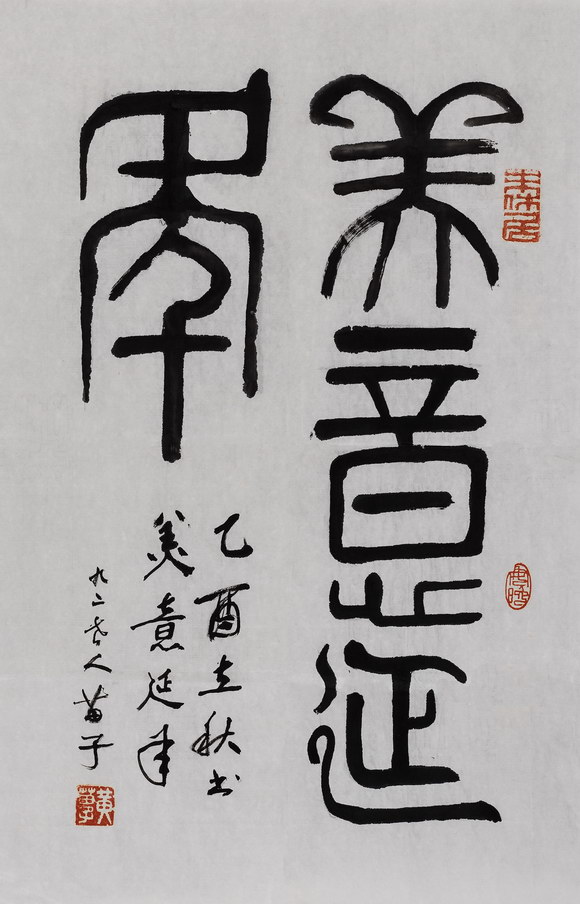 美意延
年
乙酉立秋书
美意延年
九二老人苗子